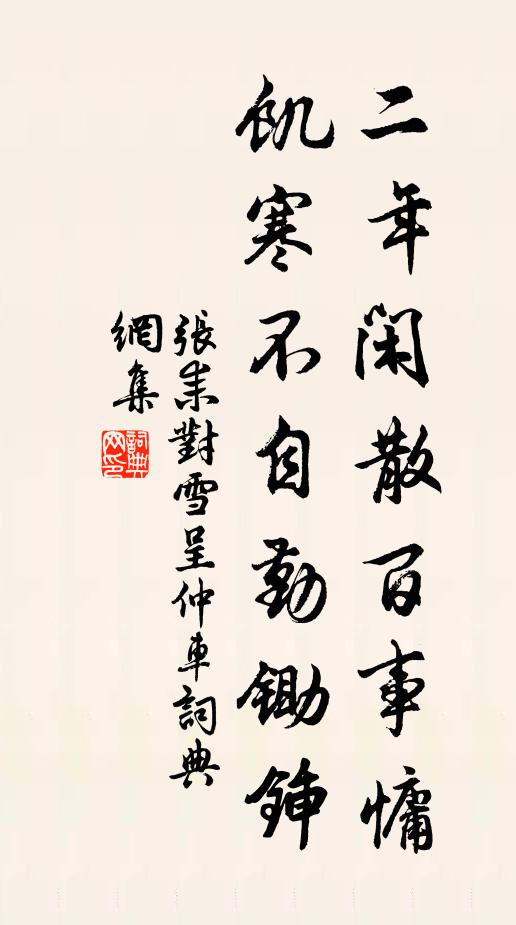 二年閑散百事慵
飢寒不自勤鋤鋛
張耒對雪呈仲車詞典
網集
詞典
网印